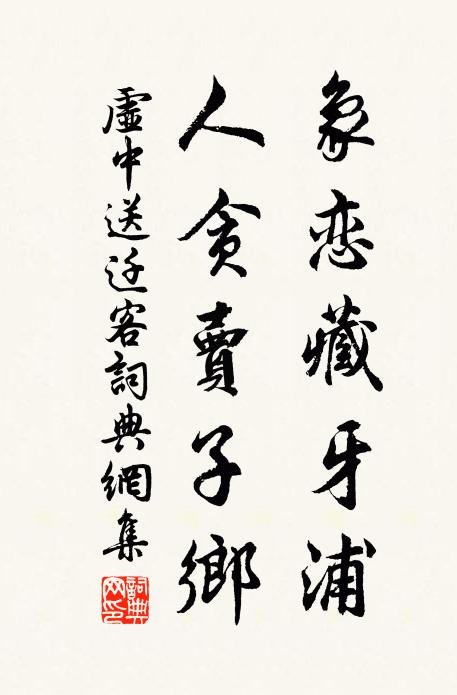 象恋藏牙浦
人贪賣子鄉
虛中送迁客詞典網集
詞典網印